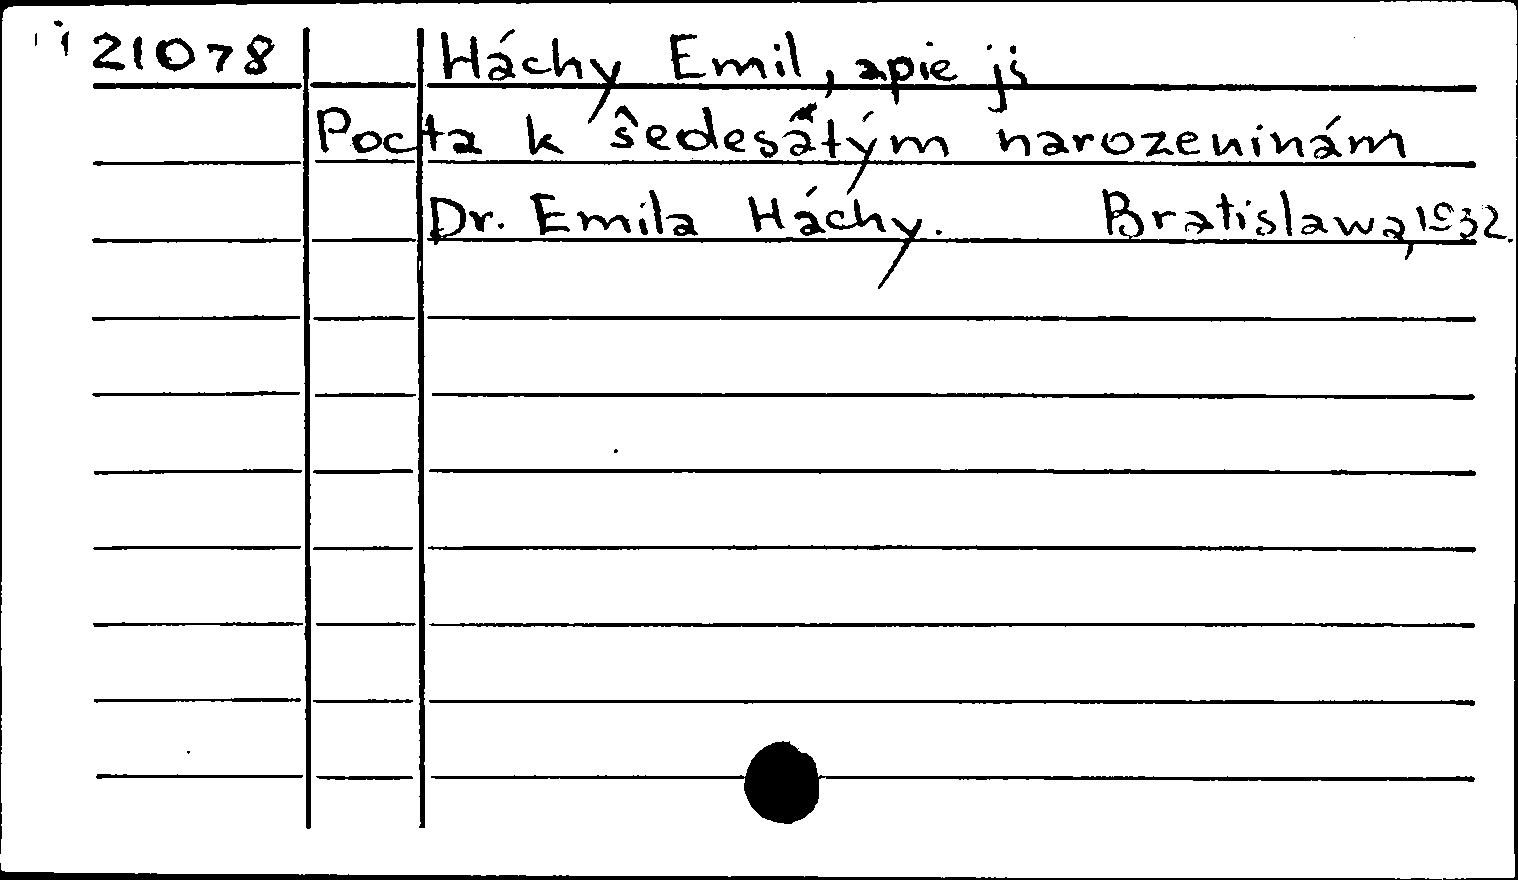 21078 Háchy Emil, apie jį
Pocta k šedesátým narozeninám
Dr. Emila Háchy. Bratislawa, 1932.